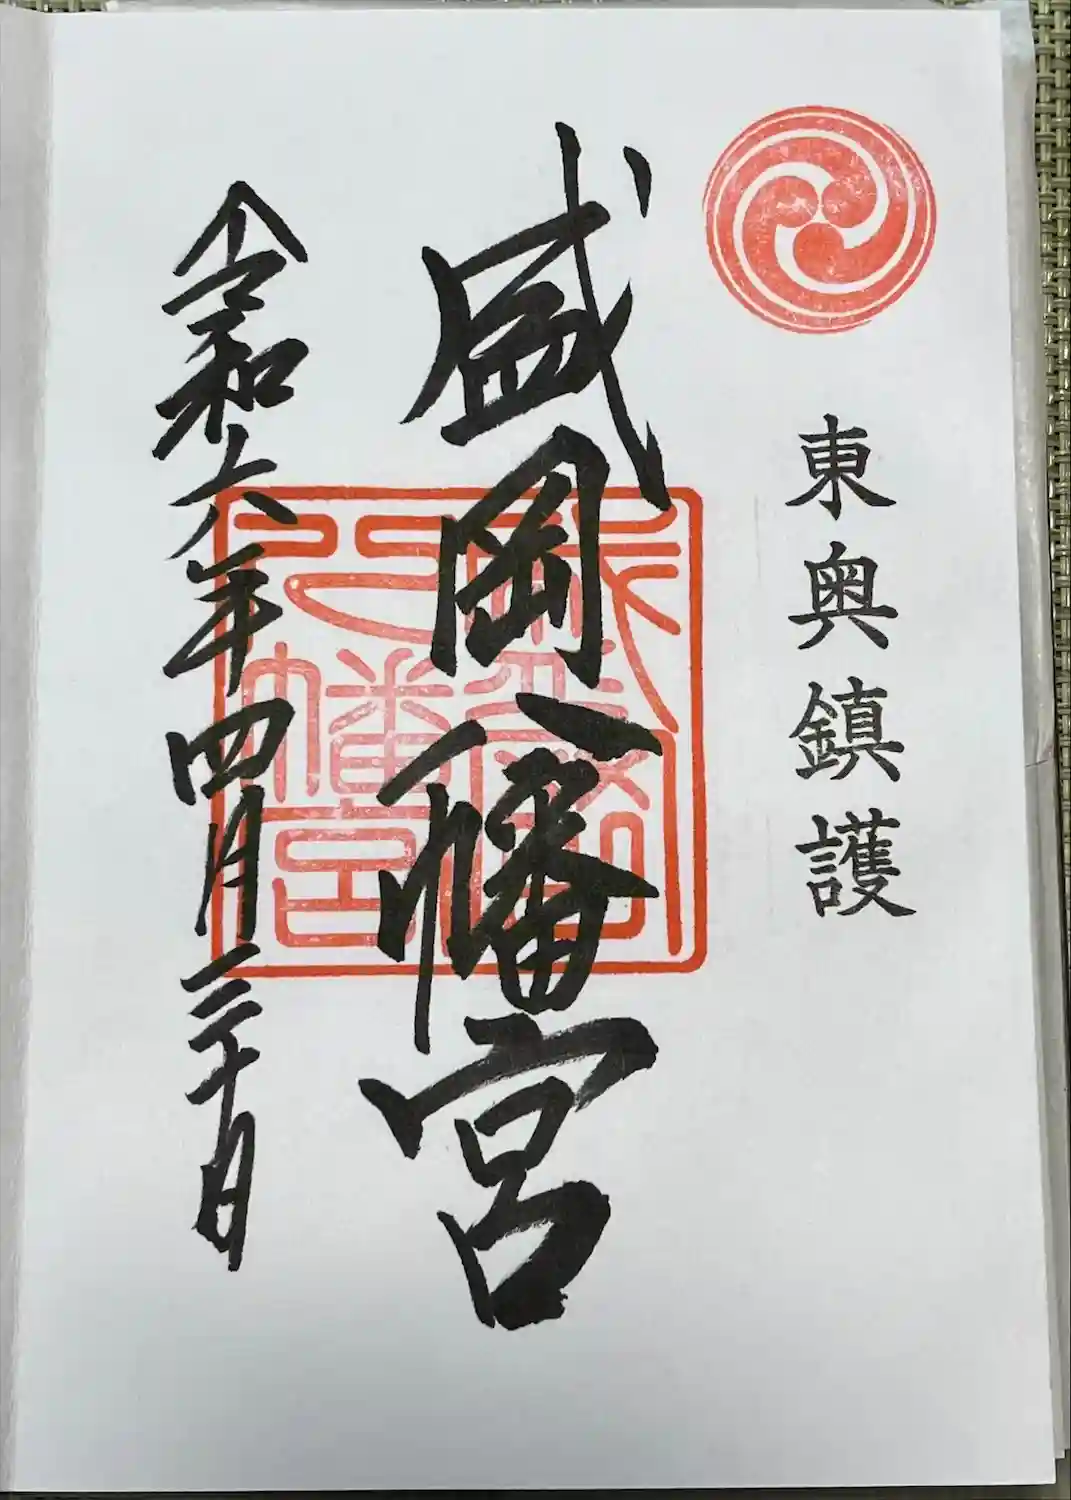 東奥鎮護
盛岡八幡宮
盛岡八幡宮
令和六年四月三十日